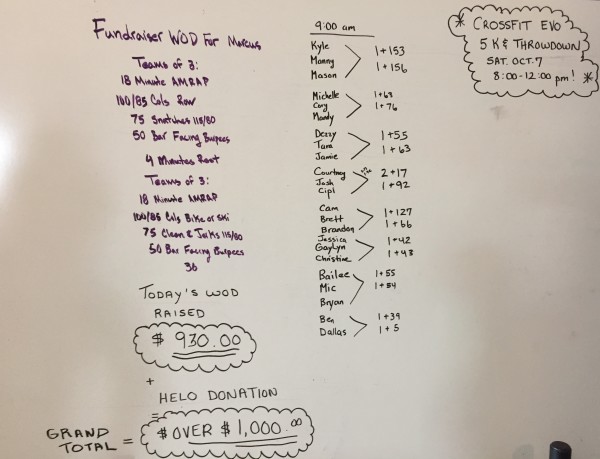 Fundraiser WOD For Marcus
Teams of 3:
18 Minute AMRAP
100/85 Cals Row
75 Snatches 115/80
50 Bar Facing Burpees
4 Minutes Rest
Teams of 3:
18 Minute AMRAP
100/85 Cals Bike or Ski
75 Clean & Jerks 115/80
50 Bar Facing Burpees
36
TODAY'S WOD
RAISED
$ 930.00
+
HELO DONATION
=
GRAND
TOTAL = $ OVER $ 1,000.00
9:00 am
Kyle 1+153
Manny 1+156
Mason
Michelle 1+68
Cory 1+76
Mandy
Dezzy 1+55
Tara 1+63
Jamie
Courtney 2+17
Josh 1+92
Cipi
Cam 1+127
Brett 1+66
Brandon
Jessica 1+42
Gaylyn 1+43
Christine
Bailee 1+55
Mic 1+54
Bryan
Ben 1+39
Dallas 1+5
* CROSSFIT EVO
5 K & THROWDOWN
SAT. OCT. 7
8:00-12:00 pm! *